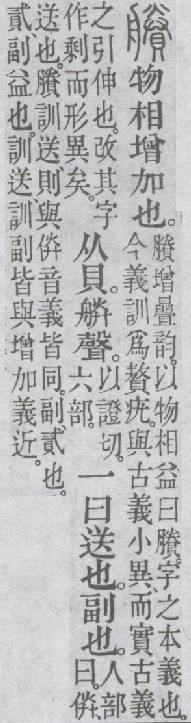 賸物相增加也。
賸增疊韵。以物相益曰賸。字之本義也。
今義訓爲贅疣。與古義小異。而實古義
之引伸也。改其字
作剩。而形異矣。
从貝。𦩎聲。
以證切。
六部。
一曰送也。副也。
人部
曰。㑞、
送也。賸訓送。則與㑞音義皆同。副、貳也。
貳、副益也。訓送訓副皆與增加義近。